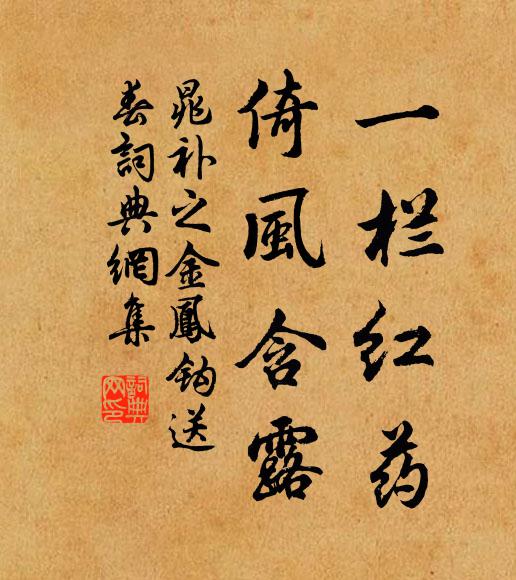 一栏红药
倚風含露
晁补之金鳳钩送
春詞典網集
詞典
网印